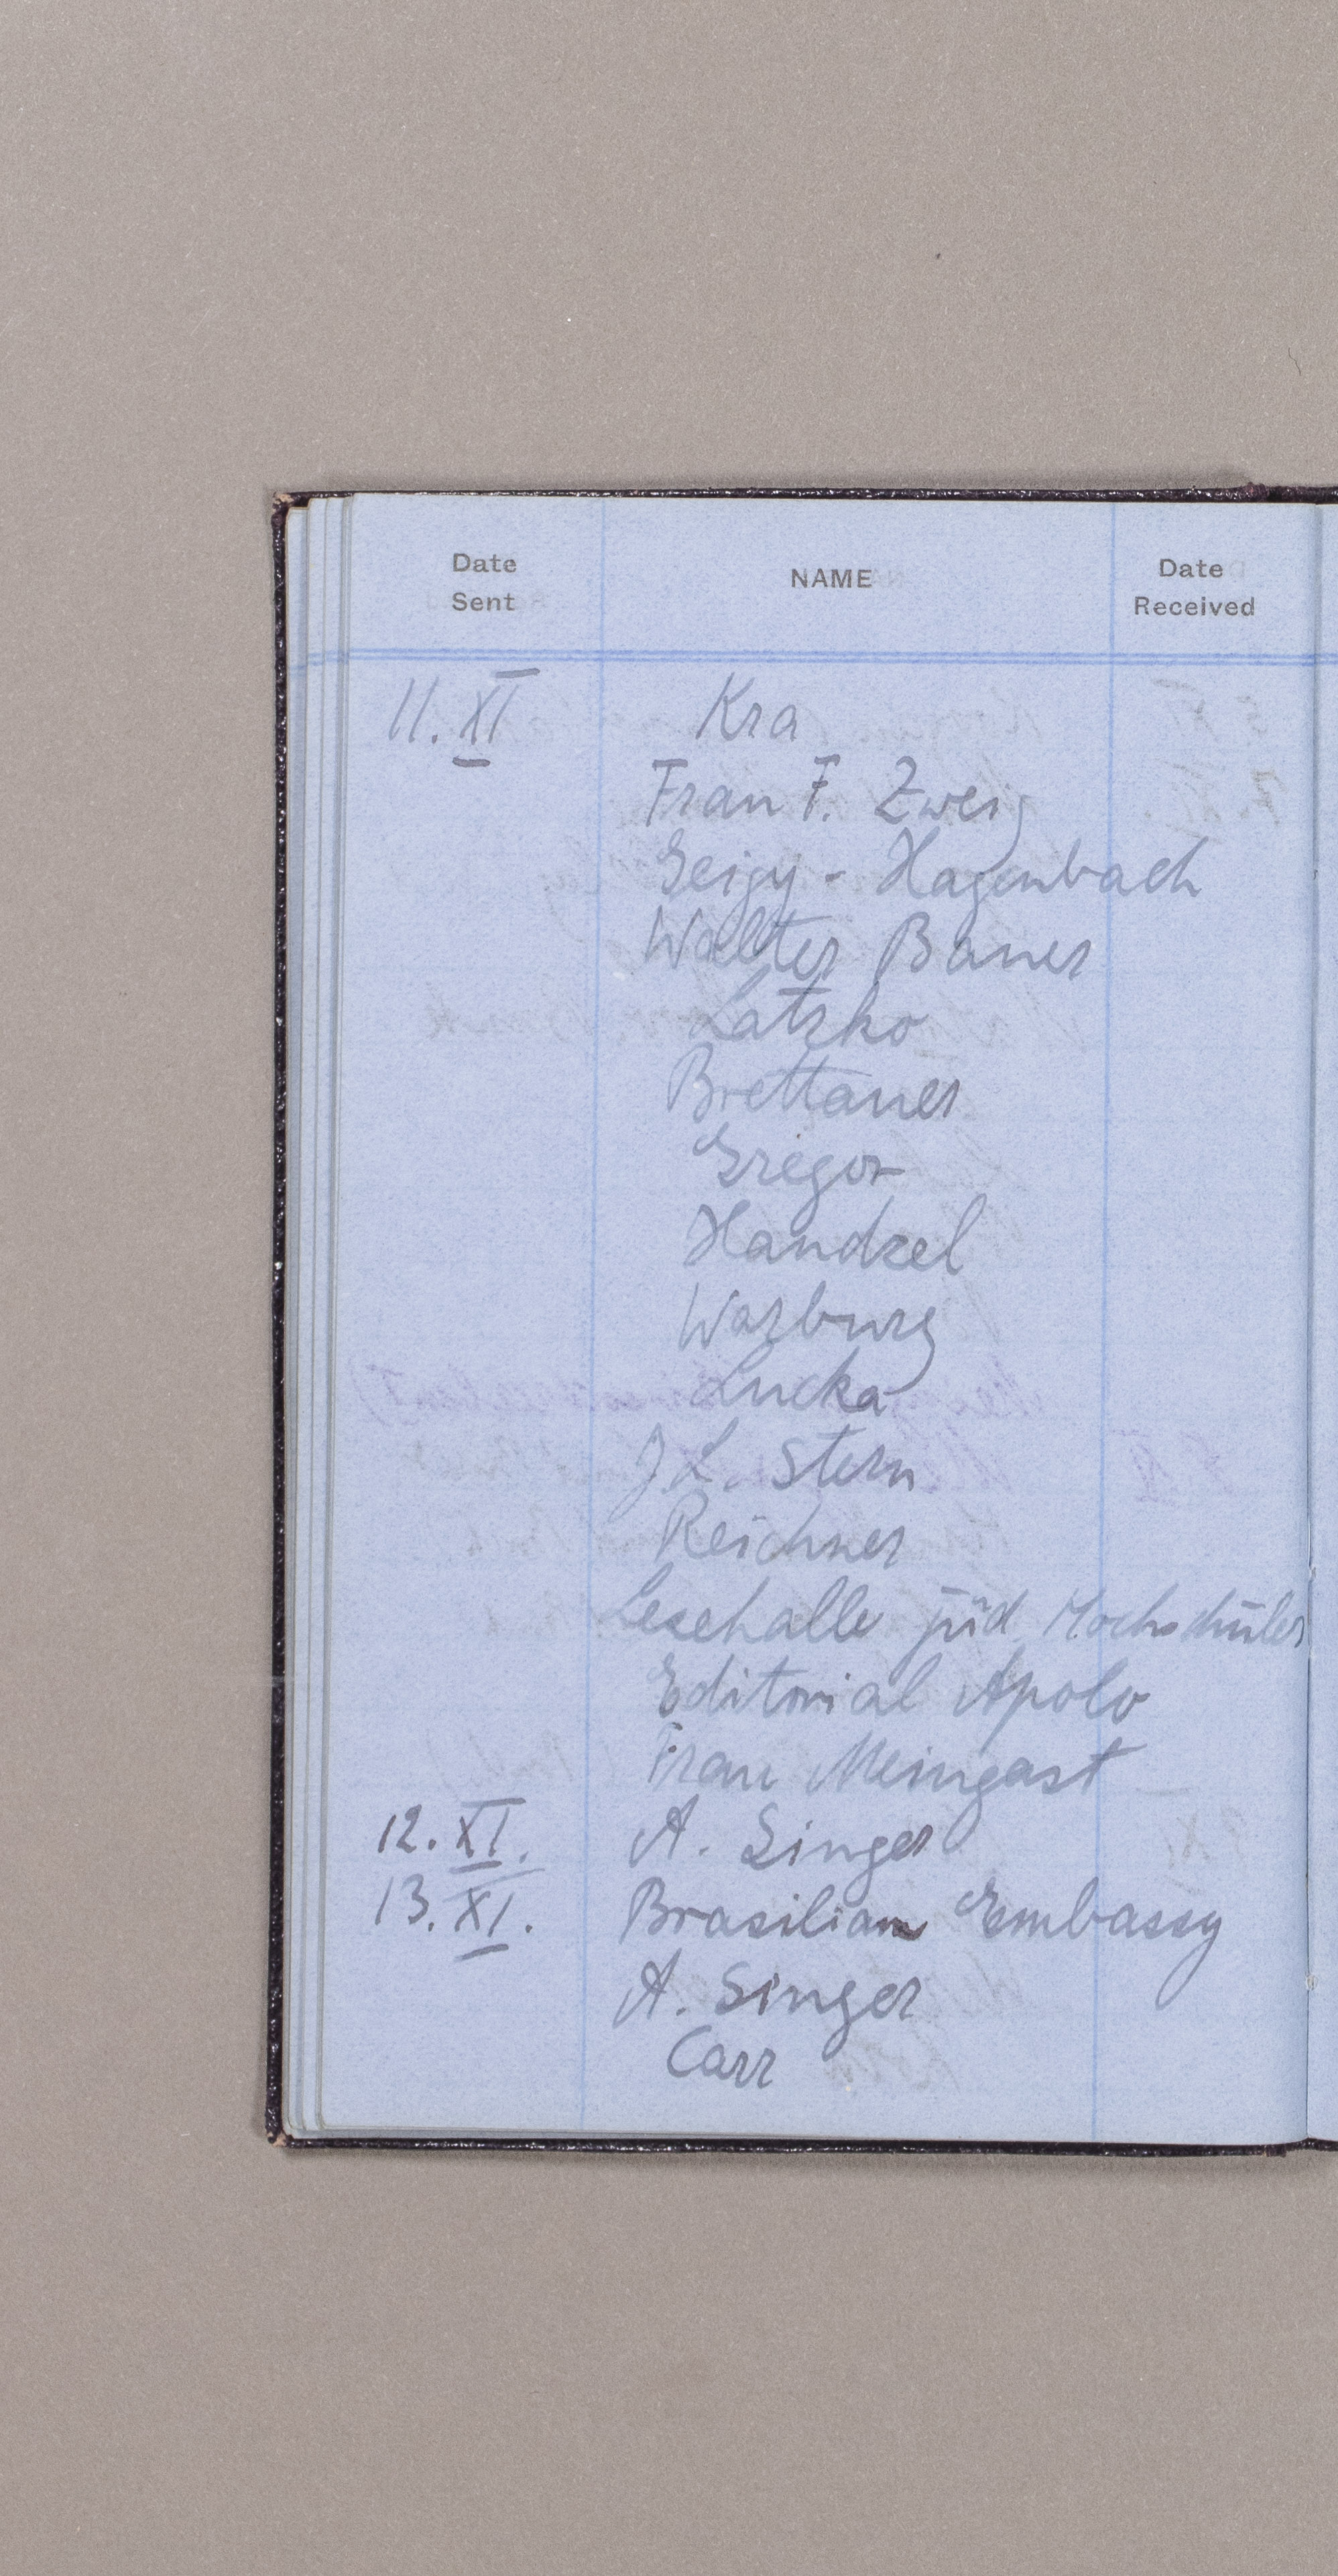 Date Sent NAME Date Received
11. XI Kra
Frau F. Zweig
Geigy - Hagenbach
Walter Bauer
Latzko
Brettauer
Gregor
Handzel
Warburg
Lucka
J. L. Stern
Reichner
Lesehalle jüd. Hochschüler
Editorial Apolo
Frau Meingast
12. XI. A. Singer
13. XI. Brasilian Embassy
A. Singer
Carr